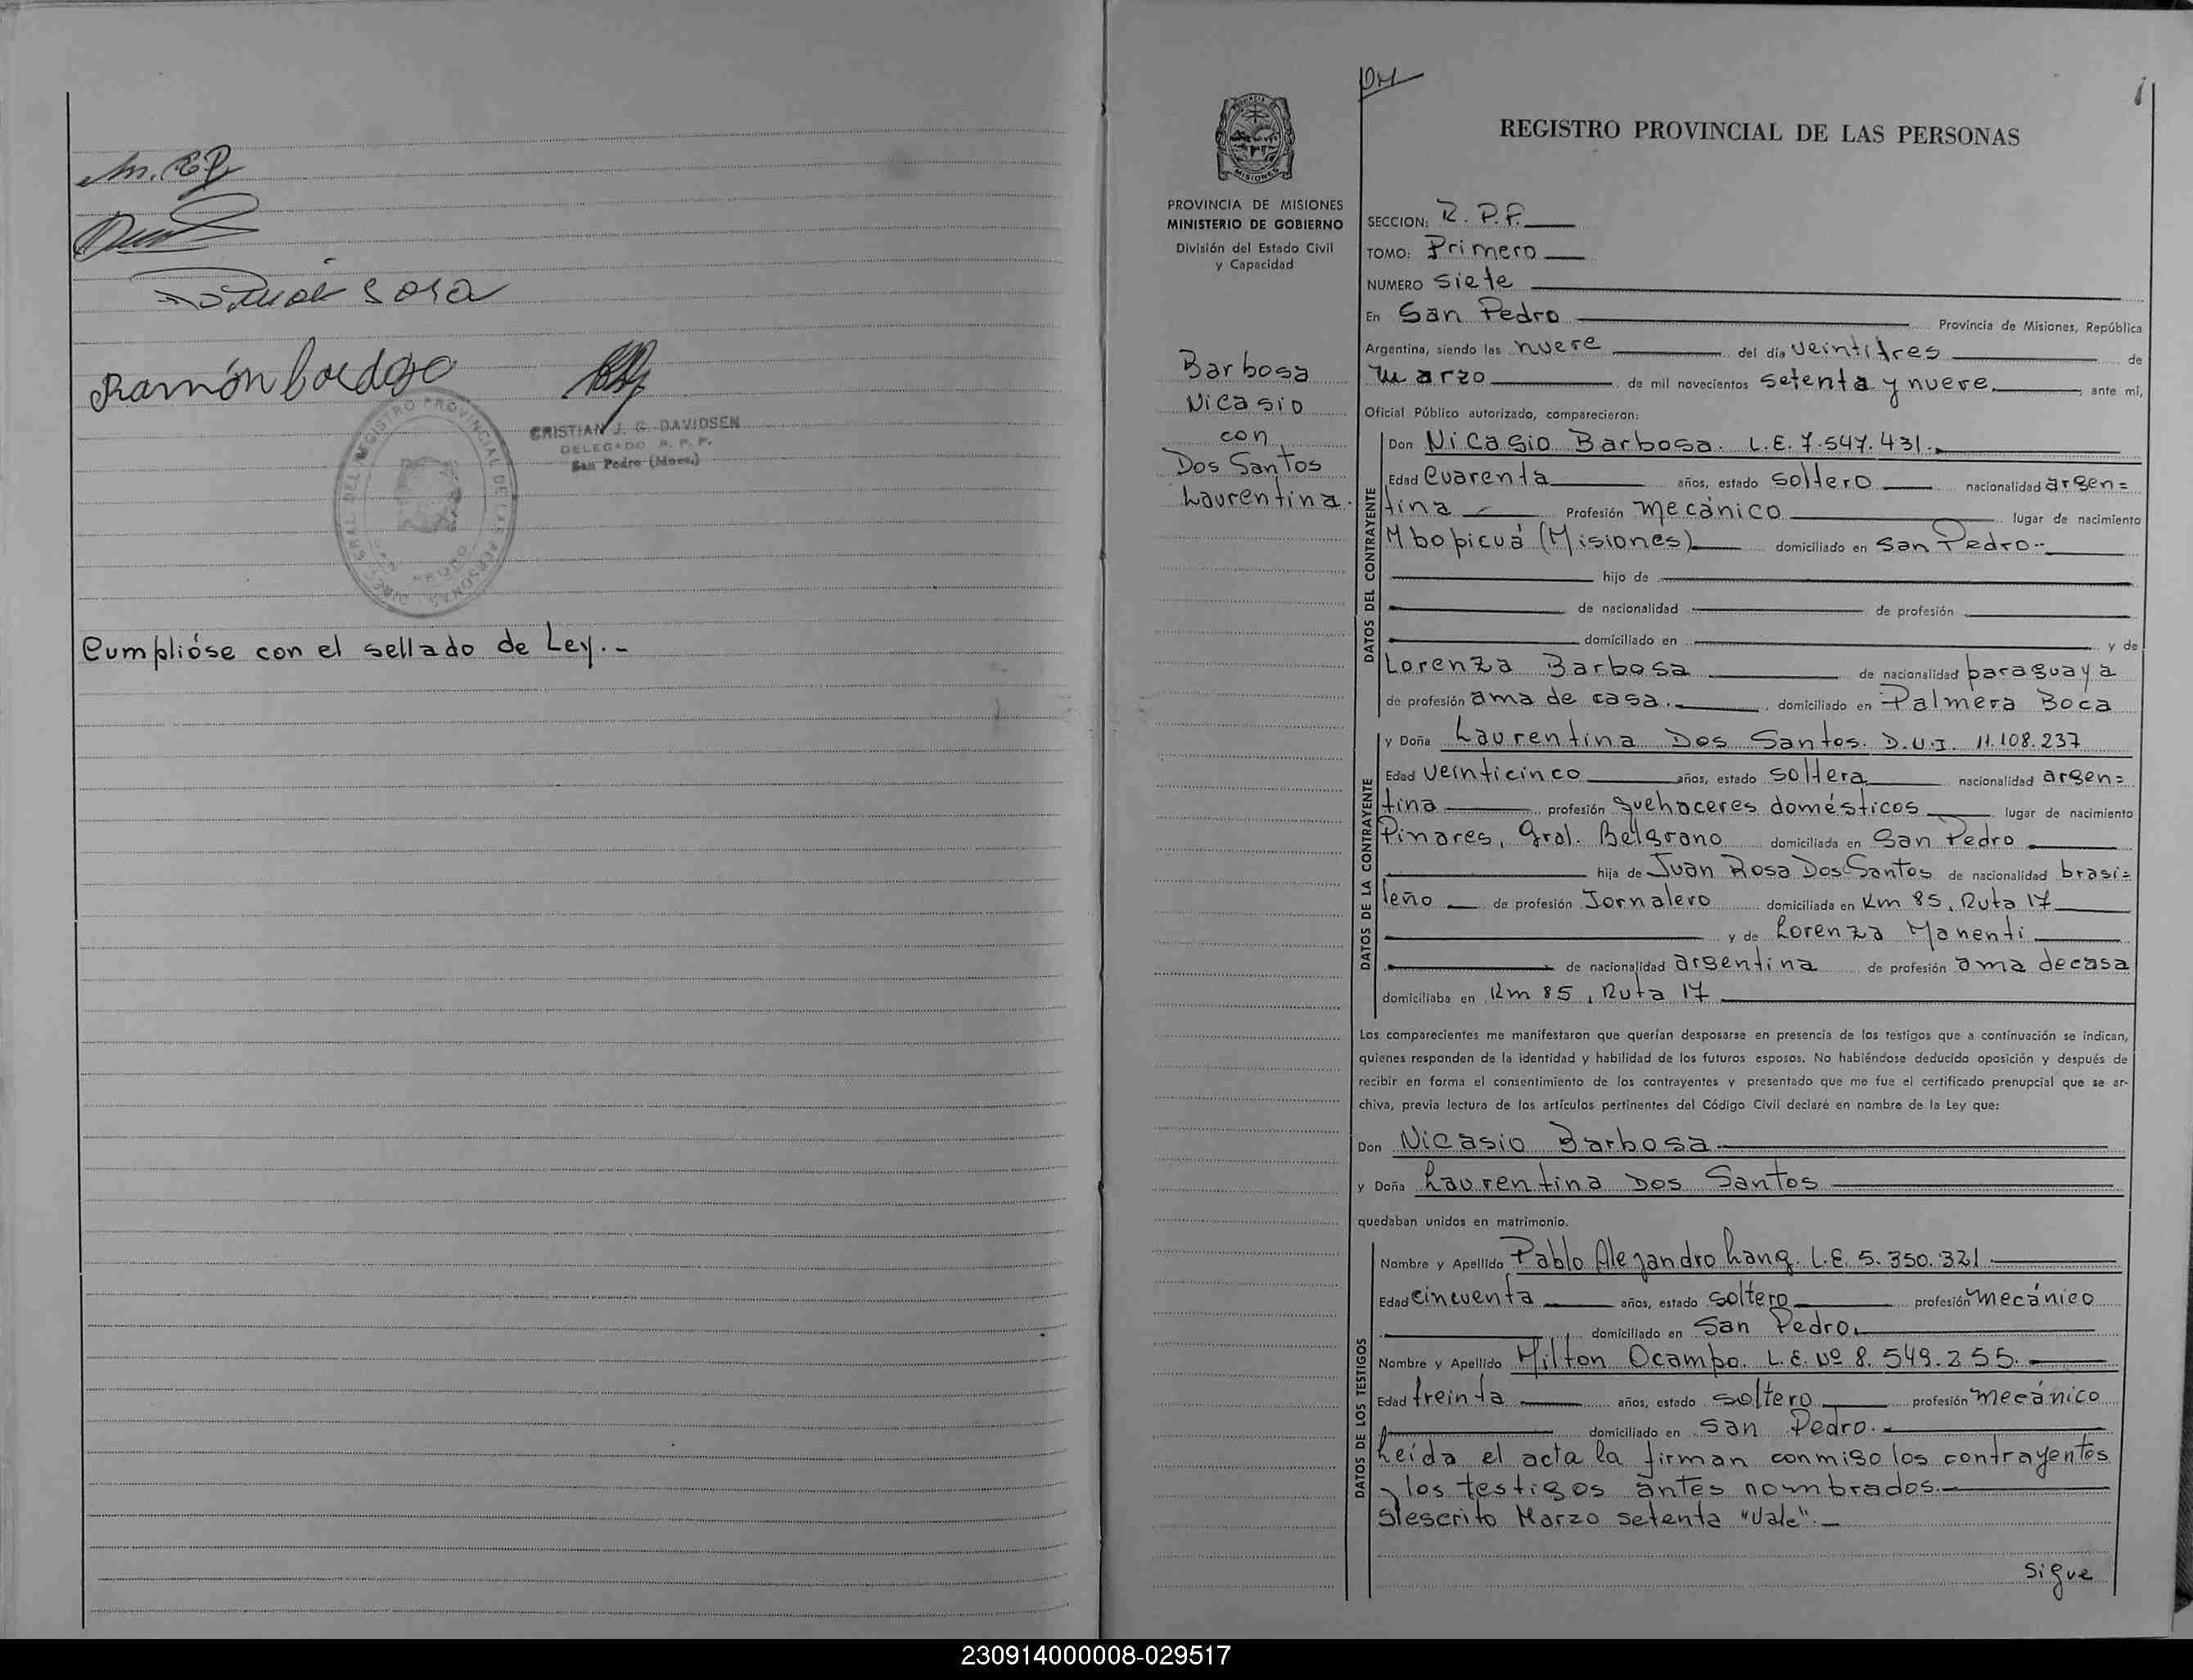 Ramón
CRISTIAN J. G. DAVIDSEN
DELEGADO R. P. P.
San Pedro (Mnes.)
REGISTRO PROVINCIAL DE LAS PERSONAS
SAN PEDRO
Cumplióse con el sellado de Ley.-
1
MISIONES
PROVINCIA DE MISIONES
MINISTERIO DE GOBIERNO
División del Estado Civil
y Capacidad
Barbosa
Nicasio
con
Dos Santos
Laurentina.
REGISTRO PROVINCIAL DE LAS PERSONAS
SECCION: R. P.P.
TOMO: Primero
NUMERO siete
En San Pedro Provincia de Misiones, República
Argentina, siendo las nueve del día veintitres de
marzo de mil novecientos setenta y nueve, ante mí,
Oficial Público autorizado, comparecieron:
DATOS DEL CONTRAYENTE
Don Nicasio Barbosa. L.E. 7.547.431.-
Edad cuarenta años, estado soltero nacionalidad argen=
tina Profesión mecánico lugar de nacimiento
Mbopicuá (Misiones) domiciliado en San Pedro.-
hijo de
de nacionalidad de profesión
domiciliado en y de
Lorenza Barbosa de nacionalidad paraguaya
de profesión ama de casa. domiciliado en Palmera Boca
DATOS DE LA CONTRAYENTE
y Doña Laurentina Dos Santos. D.U.I. 11.108.237
Edad veinticinco años, estado soltera nacionalidad argen=
tina profesión quehaceres domésticos lugar de nacimiento
Pinares, Gral. Belgrano domiciliada en San Pedro
hija de Juan Rosa Dos Santos de nacionalidad brasi=
leño de profesión Jornalero domiciliada en Km 85, Ruta 17
y de Lorenza Manenti
de nacionalidad argentina de profesión ama de casa
domiciliaba en Km 85, Ruta 17
Los comparecientes me manifestaron que querían desposarse en presencia de los testigos que a continuación se indican,
quienes responden de la identidad y habilidad de los futuros esposos. No habiéndose deducido oposición y después de
recibir en forma el consentimiento de los contrayentes y presentado que me fue el certificado prenupcial que se ar-
chiva, previa lectura de los artículos pertinentes del Código Civil declaré en nombre de la Ley que:
Don Nicasio Barbosa
y Doña Laurentina Dos Santos
quedaban unidos en matrimonio.
DATOS DE LOS TESTIGOS
Nombre y Apellido Pablo Alejandro Lang. L.E. 5.350.321
Edad cincuenta años, estado soltero profesión mecánico
domiciliado en San Pedro.
Nombre y Apellido Milton Ocampo. L.E. Nº 8.549.255.
Edad treinta años, estado soltero profesión mecánico
domiciliado en San Pedro.-
Leída el acta la firman conmigo los contrayentes
y los testigos antes nombrados.-
S/escrito Marzo setenta "Vale".-
sigue
230914000008-029517